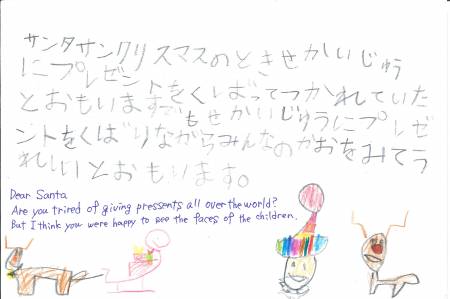 サンタサンクリスマスのときせかいじゅう
にプレゼントをくばってつかれていた
とおもいますでもせかいじゅうにプレゼ
ントをくばりながらみんなのかおをみてう
れしいとおもいます。
Dear Santa
Are you trired of giving pressents all over the world?
But I think you were happy to see the faces of the children.